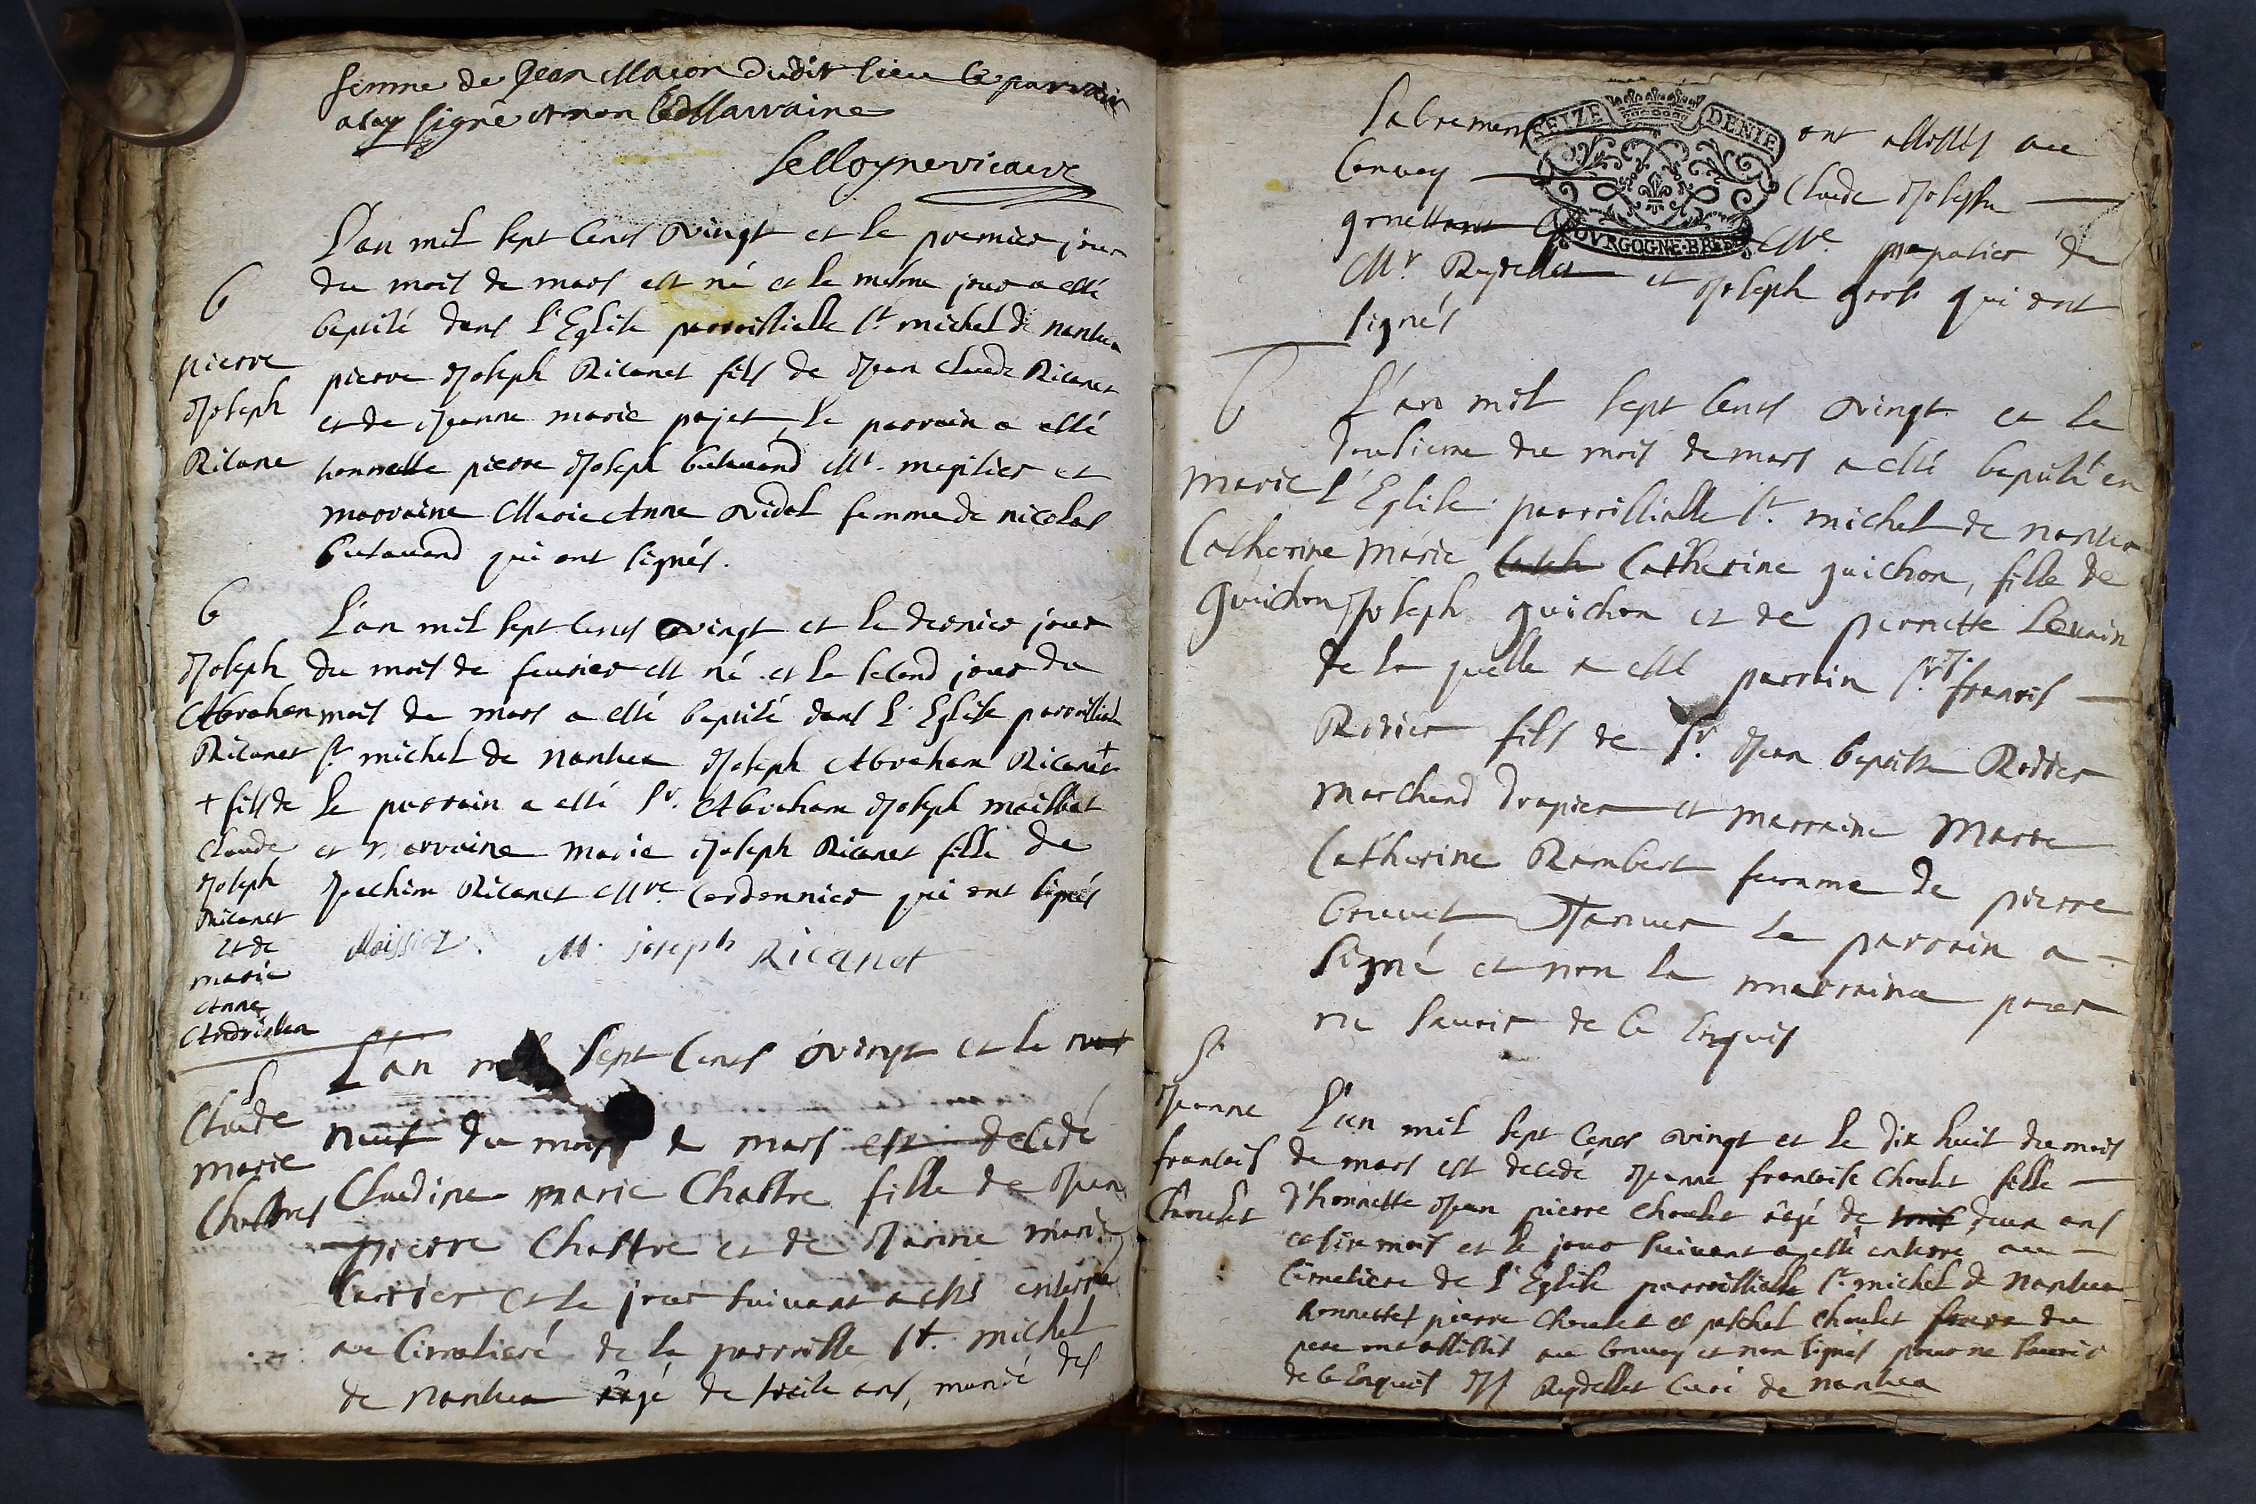 femme de Jean Maçon dudit lieu le parrain
a signé et non la Marraine
Lelloyne vicaire
L'an mil sept Cents vingt et le premier jour
du mois de mars est né et le mesme jour a esté
baptisé dans l'Eglise parroissialle St michel de nantua
pierre Joseph Ricanet fils de Jean Claude Ricanet
et de Jeanne marie pajet, le parrain a esté
honneste pierre Joseph butavand Mr. megitier et
marraine Marie Anne vidal femme de nicolas
butavand qui ont signés.
b
pierre
Joseph
Ricane
L'an mil sept Cents vingt et le dernier jour
du mois de feurier est né et le second jour du
mois de mars a esté baptisé dans l'Eglise parroissialle
st. michel de nantua Joseph Abraham Ricanet +
le parrain a esté Sr. Abraham Joseph maissiat
et marraine marie Joseph Ricanet fille de
Joachim Ricanet Mre Cordonnier qui ont signés
Maissiat. M. joseph Ricanet
b
Joseph
Abraham
Ricanet
+ fils de
Claude
Joseph
Ricanet
et de
marie
Anne
L'an mil sept Cents vingt et le
neuf du mois de mars est decedé
Claudine marie Chastre fille de Jean
pierre Chastre et de marie
Carrier et le jour suivant a esté enterré
au Cimetiere de la parroisse St. michel
de Nantua âgé de seise ans, munie des
S
Claude
marie
Chastres
Sacremens ont assistés au
Convoy Claude Joseph
Mre papetier de
Mr Reydellet et Joseph gros qui ont
signés
SEIZE DENIE
BOVRGOGNE-BRES
L'an mil sept Cents vingt et le
dousieme du mois de mars a esté baptisé en
l'Eglise parroissialle St. michel de nantua
Marie Cath Catherine guichon, fille de
Joseph guichon et de pernette Levrain
de la quelle a esté parrain Sr. françois
Rodier fils de Sr. Jean baptiste Roddier
marchand drapier et marraine Marie
Catherine Rambert femme de pierre
Le parrain a
signé et non la marraine pour
ne sauoir de Ce Enquis
b
marie
Catherine
guichon
L'an mil sept Cents vingt et le dix huit du mois
de mars est decedé Jeanne francoise Choulet fille
d'honneste Jean pierre Choulet âgé de trois deux ans
et six mois et le jour suivant a esté enterré au
Cimetiere de l'Eglise parroissialle St. michel de Nantua
honnestes pierre Choulet et Choulet du
pere ont assistés au Convoy et non signés pour ne sauoir
de Ce Enquis Reydellet Curé de nantua
S
Jeanne
francois
Choulet